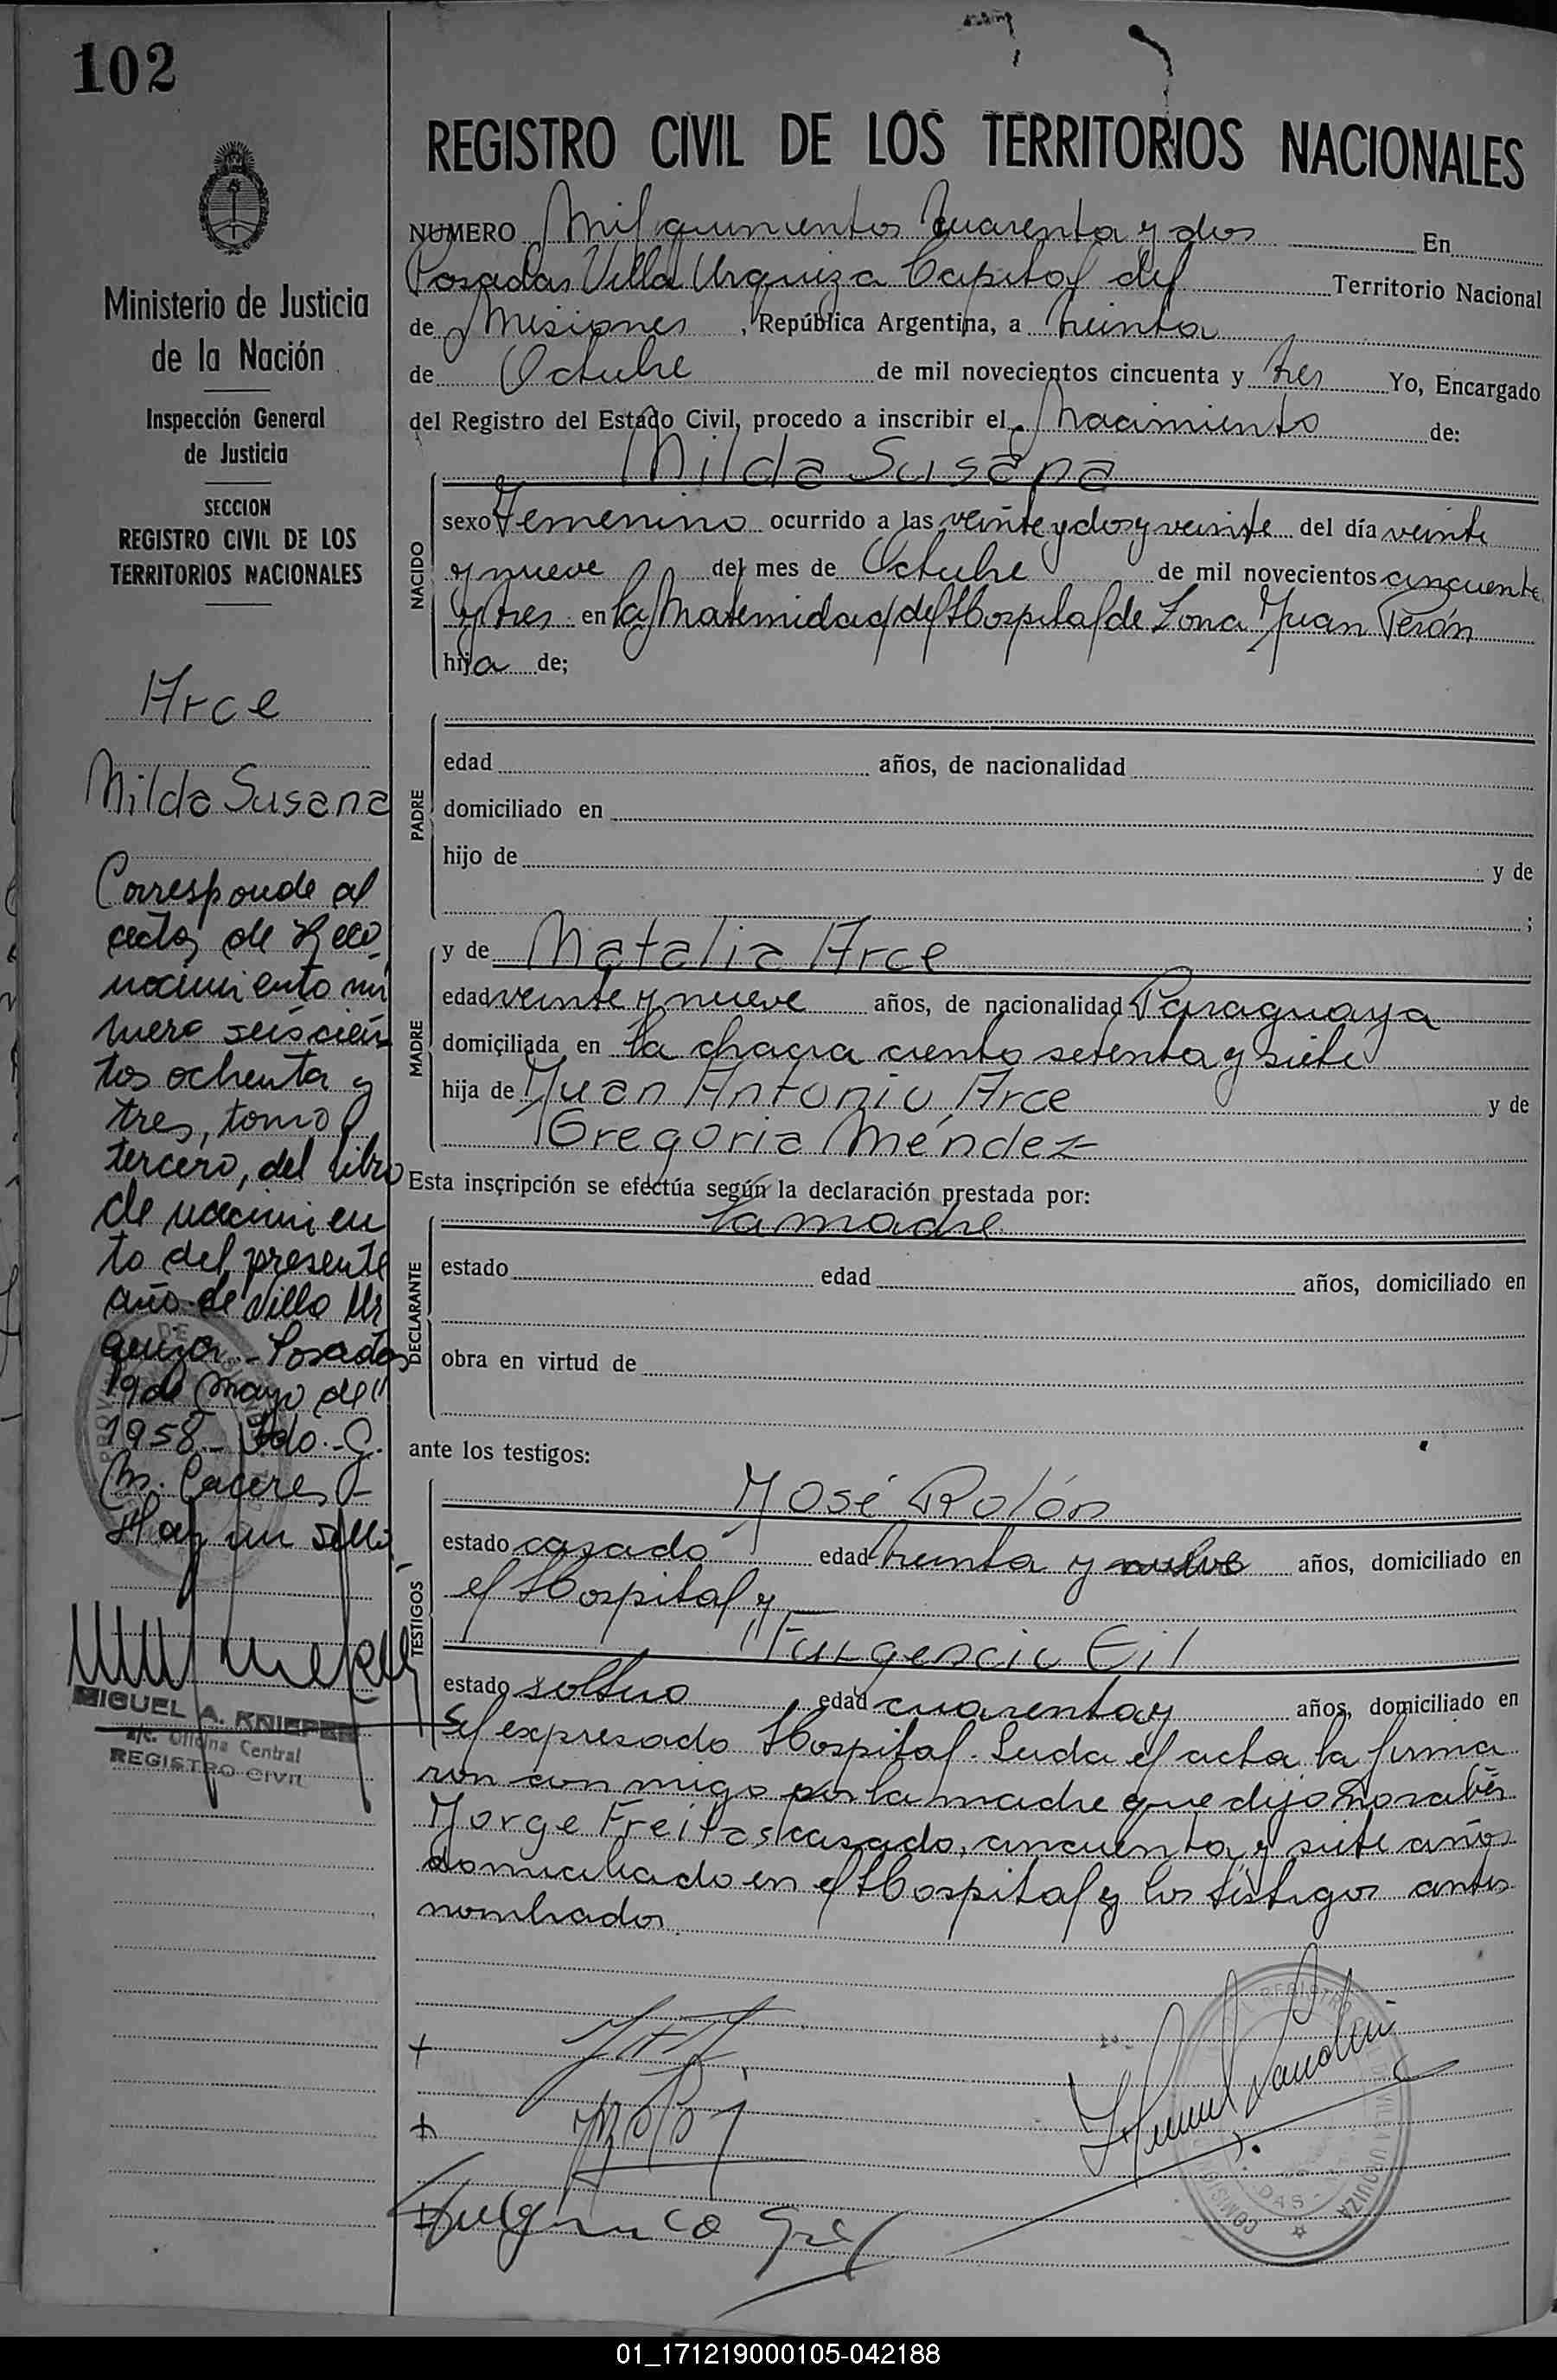 102
Ministerio de Justicia
de la Nación
Inspección General
de Justicia
SECCION
REGISTRO CIVIL DE LOS
TERRITORIOS NACIONALES
Arce
Nilda Susana
Corresponde al
acta de Reco
nocimiento nú
mero seiscien
tos ochenta y
tres, tomo
tercero, del libro
de nacimien
to del presente
año de Villa Ur
quiza.- Posadas
19 de Mayo de
1958 - Fdo.- G.
M. Caceres -
Hay un sello
MIGUEL A. KNIEPER
a/c. Oficina Central
REGISTRO CIVIL
REGISTRO CIVIL DE LOS TERRITORIOS NACIONALES
NUMERO Mil quinientos cuarenta y dos En
Posadas Villa Urquiza Capital del Territorio Nacional
de Misiones, República Argentina, a treinta
de Octubre de mil novecientos cincuenta y tres Yo, Encargado
del Registro del Estado Civil, procedo a inscribir el Nacimiento de:
Nilda Susana
NACIDO
sexo Femenino ocurrido a las veinte y dos y veinte del día veinte
y nueve del mes de Octubre de mil novecientos cincuenta
y tres en la Maternidad del Hospital de Zona Juan Perón
hija de;
PADRE
edad años, de nacionalidad
domiciliado en
hijo de y de
;
MADRE
y de Natalia Arce
edad veinte y nueve años, de nacionalidad Paraguaya
domiciliada en la chacra ciento setenta y siete
hija de Juan Antonio Arce y de
Gregoria Méndez
Esta inscripción se efectúa según la declaración prestada por:
la madre
DECLARANTE
estado edad años, domiciliado en
obra en virtud de
ante los testigos:
TESTIGOS
José Rolón
estado casado edad treinta y nueve años, domiciliado en
el Hospital y
Fulgencio Gil
estado soltero edad cuarenta y años, domiciliado en
el expresado Hospital. Leida el acta la firma
ron con migo por la madre que dijo no saber
Jorge Freitas casado, cincuenta y siete años
domiciliado en el Hospital y los testigos antes
nombrados
Fulgencio Gil
01_171219000105-042188